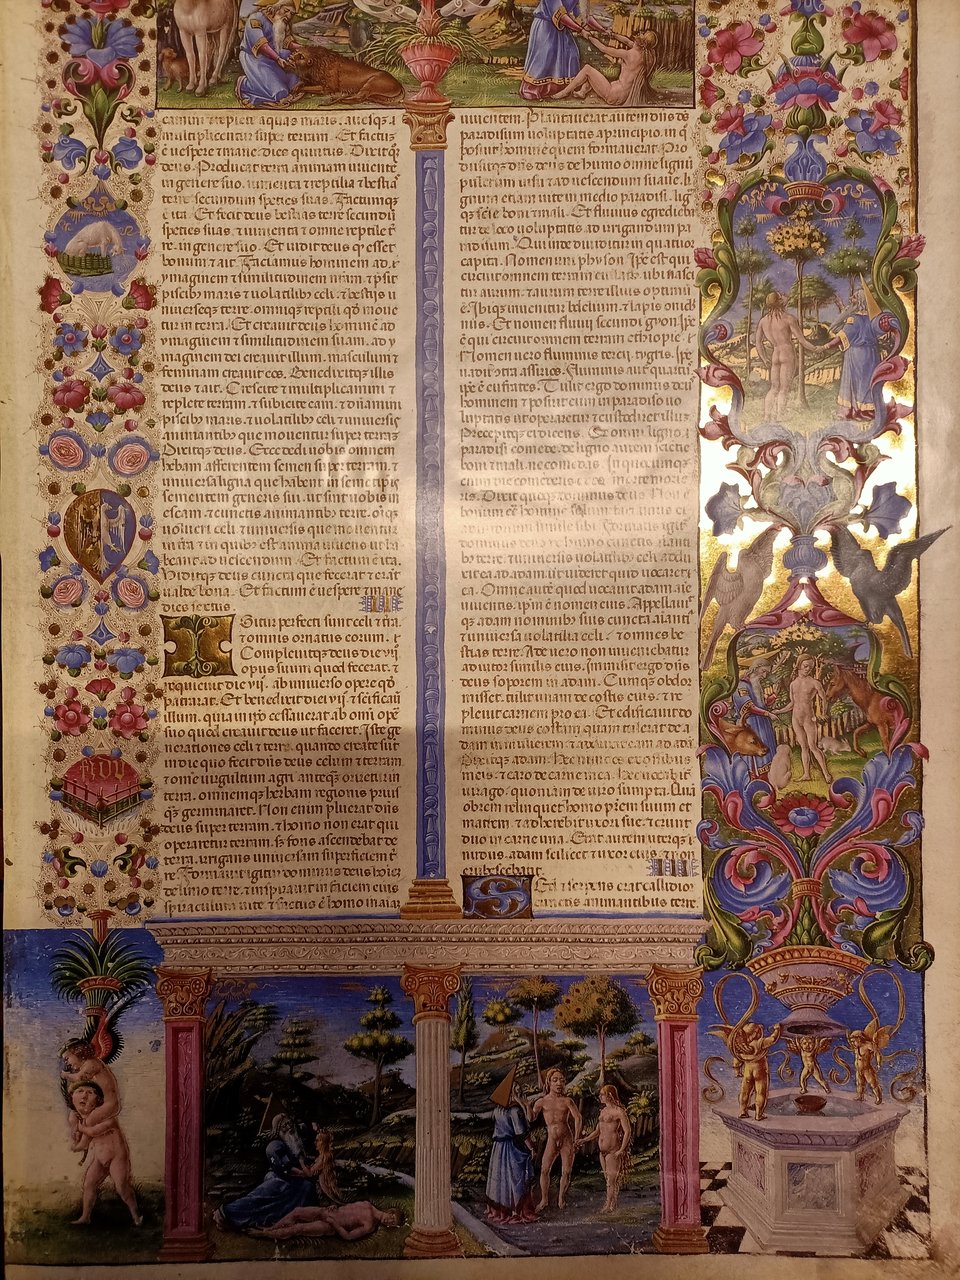 multiplicentur super terram. Et factū
ē uespere ⁊ mane dies quintus. Dixit qȝ
deus. Producat terra animam uiuentē
in genere suo. iumenta ⁊ reptilia ⁊ bestia
terre secundum species suas. Factumqȝ
ē ita. Et fecit deus bestias terre secundū
species suas. ⁊ iumenta ⁊ omne reptile t̄
re. in genere suo. Et uidit deus qȝ esset
bonum ⁊ ait. Faciamus hominem ad. y
ymaginem ⁊ similitudinem nr̄am. ⁊ p̄sit
piscibȝ maris ⁊ uolatilibȝ celi. ⁊ bestijs u
niuerseqȝ terre. omniqȝ reptili qd̄ moue
tur in terra. Et creauit deus hominē ad
ymaginem ⁊ similitudinem suam. ad y
maginem dei creauit illum. masculum ⁊
feminam creauit eos. Benedixitqȝ illis
deus ⁊ ait. Crescite ⁊ multiplicamini ⁊
replete terram. ⁊ subicite eam. ⁊ dn̄amini
piscibȝ maris ⁊ uolatilibȝ celi. ⁊ uniuersis
animantibȝ que mouentur super terrā
Dixitqȝ deus. Ecce dedi uobis omnem
herbam afferentem semen super terrā. ⁊
uniuersa ligna que habent in semetipis
sementem generis sui. ut sint uobis in
escam. ⁊ cunctis animantibȝ terre. oīqȝ
uolucri celi ⁊ uniuersis que mouentur
in t̄ra ⁊ in quibȝ est anima uiuens ut ha
beant ad uescendum. Et factum ē ita.
Viditqȝ deus cuncta que fecerat ⁊ erāt
ualde bona. Et factum ē uespere ⁊ mane
dies sextus. II
Igitur perfecti sunt celi ⁊ t̄ra.
⁊ omnis ornatus eorum. ⁊
Compleuitqȝ deus die vij
opus suum quod fecerat. ⁊
requieuit die vij. ab uniuerso opere qd̄
patrarat. Et benedixit diei vij. ⁊ sc̄ificauit
illum. quia in ipo cessauerat ab om̄i ope
suo quod creauit deus ut faceret. Iste ge
nerationes celi ⁊ terre. quando create sūt
in die quo fecit dn̄s deus celum ⁊ terram
⁊ omē uirgultum agri anteqȝ oriretur in
terra. omnemqȝ herbam regionis prius
qȝ germinaret. Non enim pluerat dn̄s
deus super terram. ⁊ homo non erat qui
operaretur terram. sȝ fons ascendebat de
terra. irrigans uniuersam superficiem t̄
re. Formauit igitur dominus deus hoīeȝ
de limo terre. ⁊ inspirauit in faciem eius
spiraculum uite. ⁊ factus ē homo in aīaȝ
uiuentem. Plantauerat autem dn̄s de
paradisum uoluptatis a principio. in q̄
posuit hominem quem formauerat. Pro
duxitqȝ dn̄s deus de humo omne lignū
pulcrum uisu ⁊ ad uescendum suaue. li
gnum etiam uite in medio paradisi. lig
qȝ scie boni ⁊ mali. Et fluuius egredieba
tur de loco uoluptatis ad irrigandum pa
radisum. Qui inde diuiditur in quatuor
capita. Nomen uni physon. Ipse est qui
circuit omnem terram euilath. ubi nasci
tur aurum. ⁊ aurum terre illius optimū
ē. Ibiqȝ inuenitur bdelium. ⁊ lapis onichi
nus. Et nomen fluuij secundi gyon. ip̄e
ē qui circuit omnem terram ethiopie. ⁊
Nomen uero fluminis tercij. tygris. ip̄e
uadit cōtra assirios. Fluuius aut̄ quartꝰ
ip̄e ē eufrates. Tulit ergo dominus deus
hominem ⁊ posuit eum in paradiso uo
luptatis ut operaretur ⁊ custodiret illuȝ.
Precepitqȝ ei dicens. Ex omni ligno
paradisi comede. de ligno autem scientie
boni ⁊ mali. ne comedas. In quocunqȝ
enim die comederis ex eo. morte morie
ris. Dixit quoqȝ dominus deus. Non ē
bonum eē hominē solum.
ritea ad adam ut uideret quid uocaret ea
. Omne autem quod uocauit adam aīe
uiuentis. ipm̄ ē nomen eius. Appellauit
qȝ adam nominibus suis cuncta aīantia
⁊ uniuersa uolatilia celi. ⁊ omnes be
stias terre. Ade uero non inueniebatur
adiutor similis eius. Inmisit ergo dn̄s
deus soporem in adam. Cumqȝ obdor
misset. tulit unam de costis eius. ⁊ re
pleuit carnem pro ea. Et edificauit do
minus deus costam quam tulerat de a
dam in mulierem. ⁊ adduxit eam ad adā
Dixitqȝ adam. Hoc nunc os ex ossibus
meis. ⁊ caro de carne mea. Hec uocabit̄
uirago. quoniam de uiro sumpta. Quā
obrem relinquet homo p̄rem suum et
matrem. ⁊ adherebit uxori sue. ⁊ erunt
duo in carne una. Erat autem uterqȝ
nudus. adam scilicet ⁊ uxor eius. ⁊ non
erubescebāt. III
Sed ⁊ serpens erat callidior
cunctis animantibus terre.